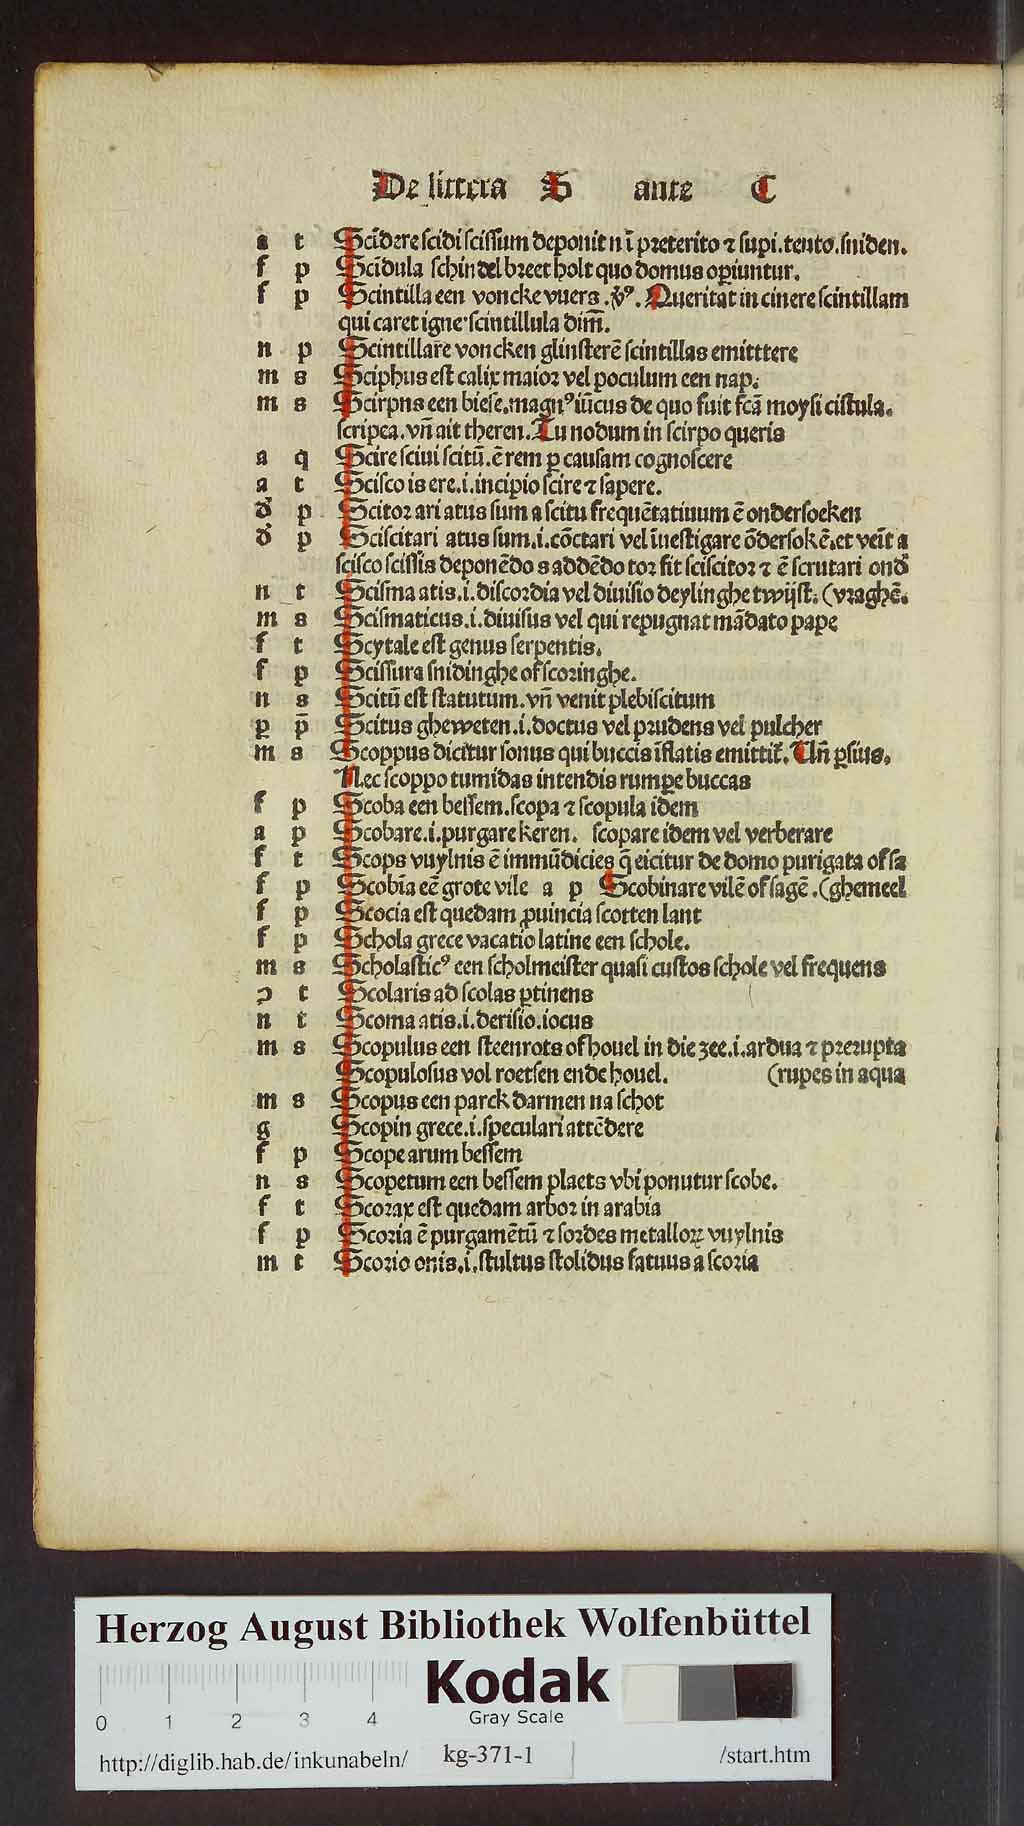 De littera S ante C
a t Scīdere scidi scissum deponit n ī preterito ⁊ supi. tento. sniden.
f p Scīdula schindel breet holt quo domus oꝑiuntur.
f p Scintilla een voncke vuers. v̉ꝰ. Queritat in cinere scintillam
qui caret igne·scintillula dim̄.
n p Scintillare voncken glinsterē scintillas emitttere
m s Sciphus est calix maior vel poculum een nap.
m s Scirpns een biese. magnꝰ iūcus de quo fuit fcā moysi cistula.
scripea. vn̄ ait theren. Tu nodum in scirpo queris
a q Scire sciui scitū. ē rem ꝑ causam cognoscere
a t Scisco is ere. i. incipio scire ⁊ sapere.
d̉ p Scitor ari atus sum a scitu frequētatiuum ē ondersoeken
d̉ p Sciscitari atus sum. i. cōctari vel īuestigare ōdersokē. et veīt a
scisco scissis deponēdo s addēdo tor fit sciscitor ⁊ ē scrutari ond̉
n t Scisma atis. i. discordia vel diuisio deylinghe twijst. (vraghē.
m s Scismaticus. i. diuisus vel qui repugnat mādato pape
f t Scytale est genus serpentis.
f p Scissura snidinghe of scoringhe.
n s Scitū est statutum. vn̄ venit plebiscitum
ꝑ p̄ Scitus gheweten. i. doctus vel prudens vel pulcher
m s Scoppus dicitur sonus qui buccis īflatis emittit̄. Un̄ ꝑsius.
Nec scoppo tumidas intendis rumpe buccas
f p Scoba een bessem. scopa ⁊ scopula idem
a p Scobare. i. purgare keren. scopare idem vel verberare
f t Scops vuylnis ē immūdicies q̄ eicitur de domo purigata of sa
f p Scobīa eē grote vile a p Scobinare vilē of sagē. (ghemeel
f p Scocia est quedam ꝓuincia scotten lant
f p Schola grece vacatio latine een schole.
m s Scholasticꝰ een scholmeister quasi custos schole vel frequens
ɔ t Scolaris ad scolas ꝑtinens
n t Scoma atis. i. derisio. iocus
m s Scopulus een steenrots of houel in die zee. i. ardua ⁊ prerupta
Scopulosus vol roetsen ende houel. (rupes in aqua
m s Scopus een parck darmen na schot
g Scopin grece. i. speculari attēdere
f p Scope arum bessem
n s Scopetum een bessem plaets vbi ponutur scobe.
f t Scorax est quedam arbor in arabia
f p Scoria ē purgamētū ⁊ sordes metalloꝝ vuylnis
m t Scorio onis. i. stultus stolidus fatuus a scoria
Herzog August Bibliothek Wolfenbüttel
0 1 2 3 4
Kodak
Gray Scale
http://diglib.hab.de/inkunabeln/ kg-371-1 /start.htm